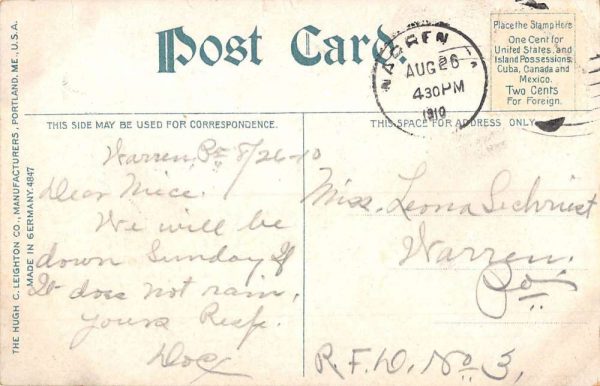 Post Card.
WARREN PA
AUG 26
4 30 PM
1910
Place the Stamp Here
One Cent for
United States, and
Island Possessions,
Cuba, Canada and
Mexico.
Two Cents
For Foreign.
THE HUGH C. LEIGHTON CO., MANUFACTURERS, PORTLAND, ME., U.S.A.
MADE IN GERMANY. 4847
THIS SIDE MAY BE USED FOR CORRESPONDENCE.
Warren, Pa 8/26-10
Dear Niece.
We will be
down Sunday If
It does not rain.
Yours Resp.
THIS SPACE FOR ADDRESS ONLY
Miss. Leona Sechriest
Warren.
Pa.
R.F.D. No 3,